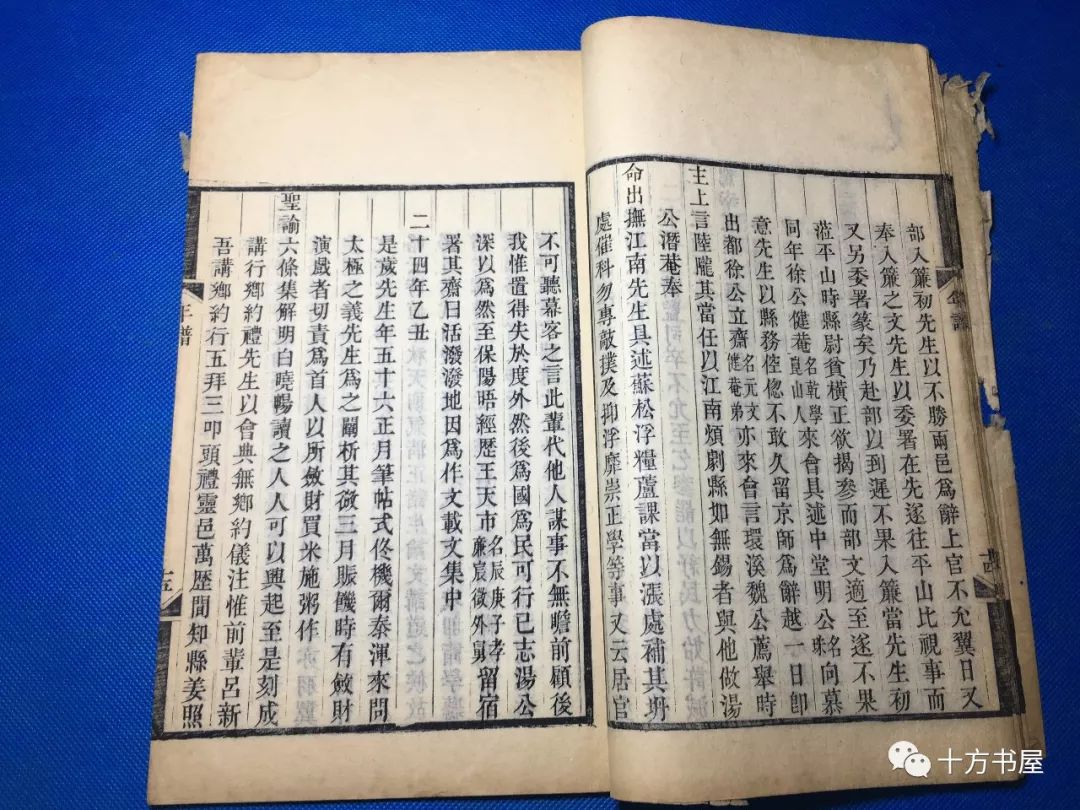 部入簾初先生以不勝兩邑爲辭上官不允翼日又
奉入簾之文先生以委署在先遂往平山比視事而
又另委署篆矣乃赴部以到遲不果入簾當先生初
蒞平山時縣尉貧橫正欲揭參而部文適至遂不果
同年徐公健菴名乾學崑山人來會具述中堂明公名珠向慕
意先生以縣務倥偬不敢久留京師爲辭越一日卽
出都徐公立齋名元文健菴弟亦來會言環溪魏公薦舉時
主上言陸隴其當任以江南煩劇縣如無錫者與他做湯
公潛菴奉
命出撫江南先生具述蘇松浮糧蘆課當以漲處補其坍
處催科勿專敲撲及抑浮靡崇正學等事又云居官
不可聽幕客之言此輩代他人謀事不無瞻前顧後
我惟置得失於度外然後爲國爲民可行已志湯公
深以爲然至保陽晤經歷王天市名辰庚子孝廉宸徵外舅留宿
署其齋曰活潑潑地因爲作文載文集中
二十四年乙丑
是歲先生年五十六正月筆帖式佟機爾泰渾來問
太極之義先生爲之闡析其微三月賑饑時有斂財
演戲者切責爲首人以所斂財買米施粥作
聖諭六條集解明白曉暢讀之人人可以興起至是刻成
講行鄉約禮先生以會典無鄉約儀注惟前輩呂新
吾講鄉約行五拜三叩頭禮靈邑萬歷間知縣姜照
年譜
十五
十方书屋